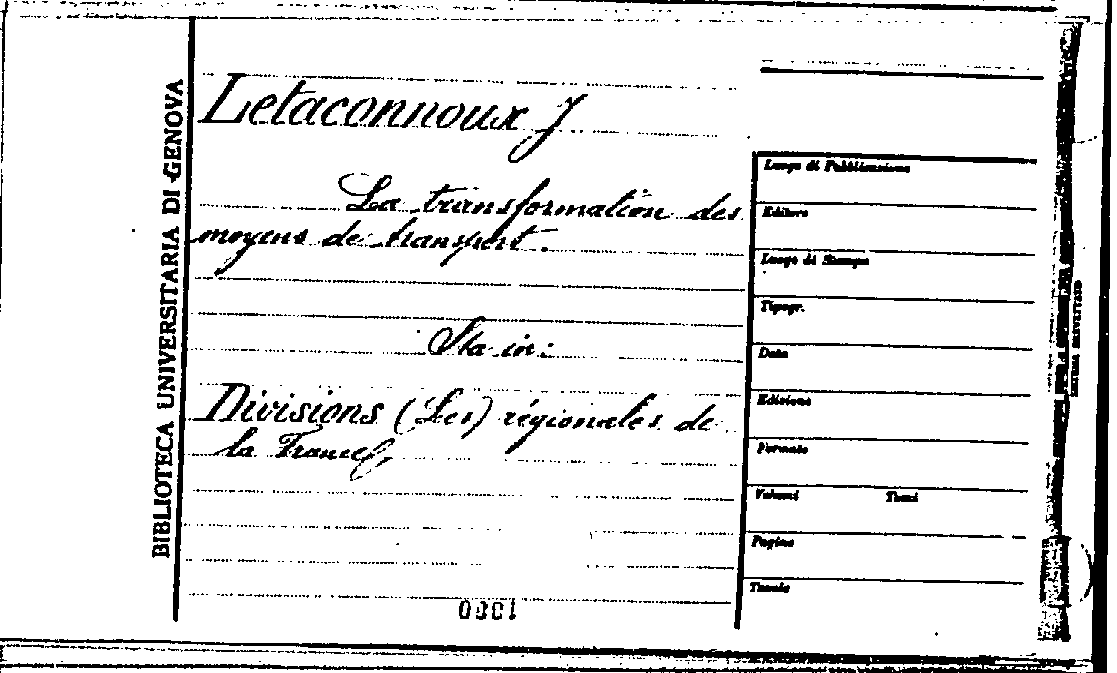 BIBLIOTECA UNIVERSITARIA DI GENOVA
Letaconnoux J
La transformation des
moyens de transport.
Sta in:
Divisions (Les) régionales de
la France
0001
Luogo di Pubblicazione
Editore
Luogo di Stampa
Tipogr.
Data
Edizione
Formato
Volumi Tomi
Pagine
Tavole